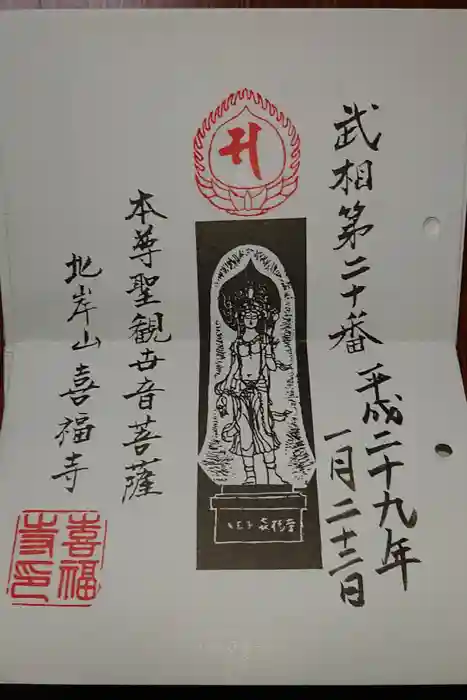 武相第二十番
平成二十九年
一月二十二日
本尊聖観世音菩薩
地岸山 喜福寺
喜福
寺印